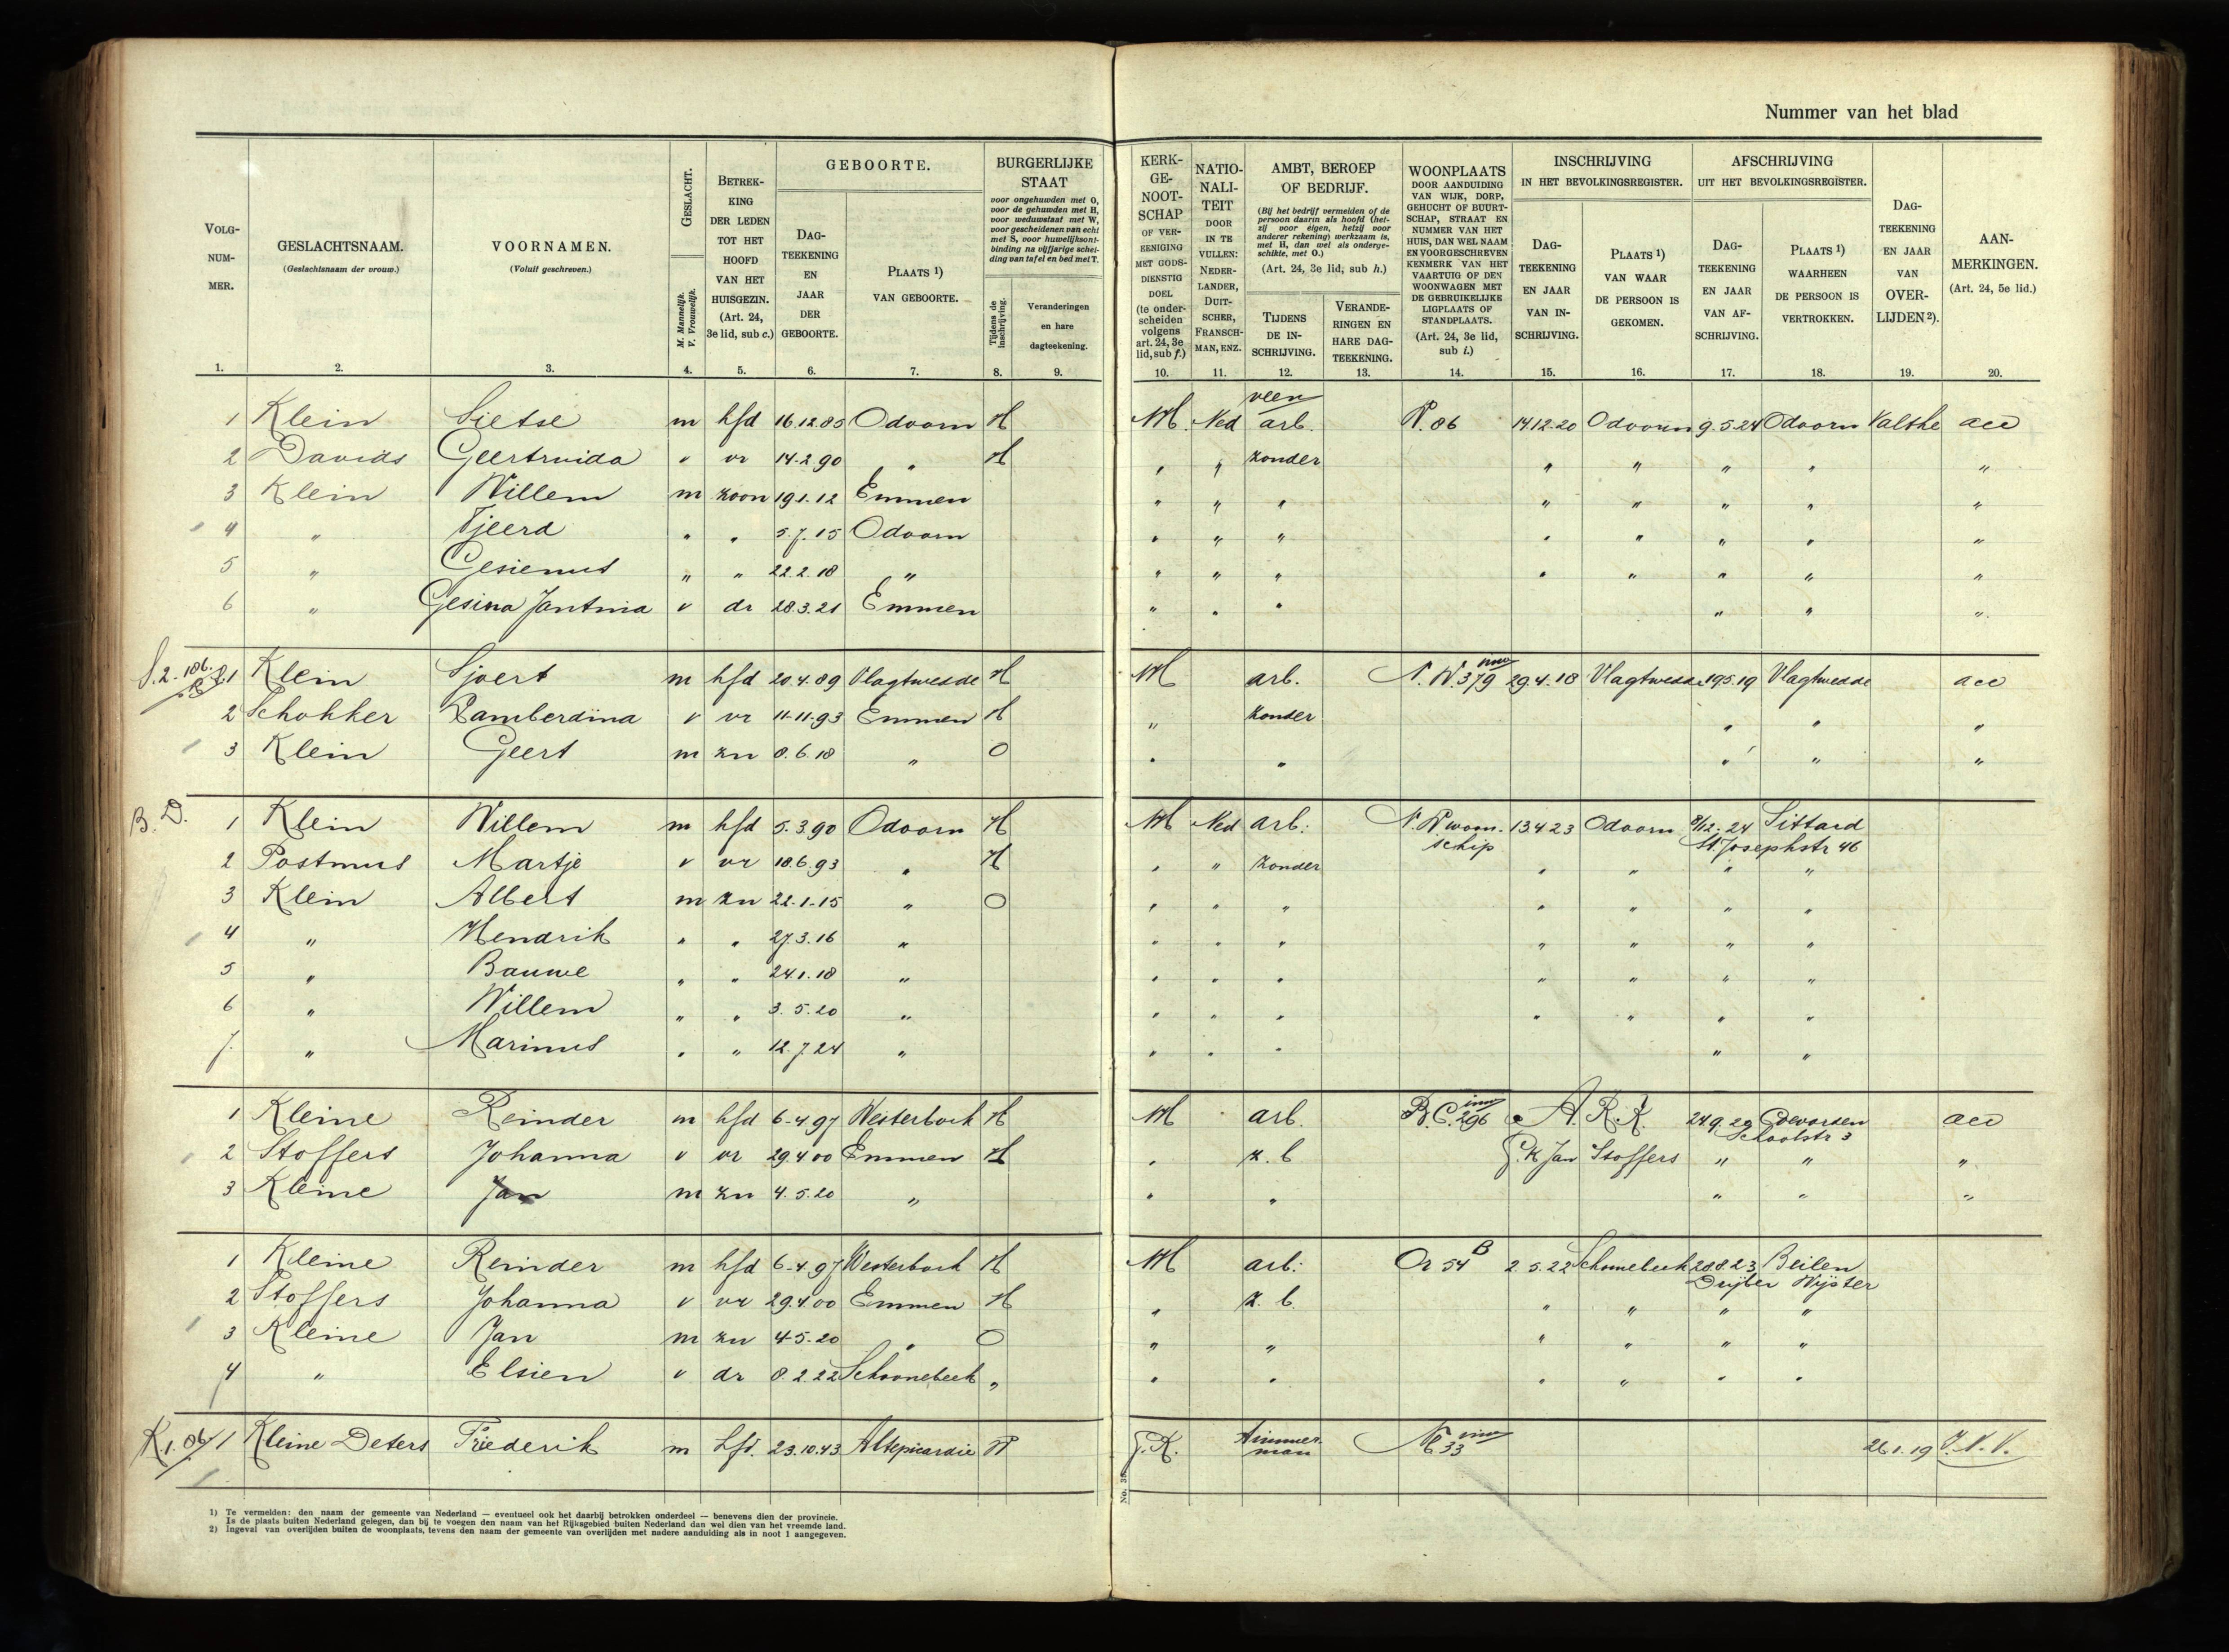 Nummer van het blad
VOLG-NUM-MER. GESLACHTSNAAM. (Geslachtsnaam der vrouw.) VOORNAMEN. (Voluit geschreven.) GESLACHT. M. Mannelijk. V. Vrouwelijk. BETREK-KING DER LEDEN TOT HET HOOFD VAN HET HUISGEZIN. (Art. 24, 3e lid, sub c.) GEBOORTE. DAG-TEEKENING EN JAAR DER GEBOORTE. PLAATS 1) VAN GEBOORTE. BURGERLIJKE STAAT voor ongehuwden met O, voor de gehuwden met H, voor weduwstaat met W, voor gescheidenen van echt met S, voor huwelijksont-binding na vijfjarige schei-ding van tafel en bed met T. Tijdens de inschrijving. Veranderingen en hare dagteekening.
KERK-GE-NOOT-SCHAP OF VER-EENIGING MET GODS-DIENSTIG DOEL (te onder-scheiden volgens art. 24, 3e lid, sub f.) NATIO-NALI-TEIT DOOR IN TE VULLEN: NEDER-LANDER, DUIT-SCHER, FRANSCH-MAN, ENZ. AMBT, BEROEP OF BEDRIJF. (Bij het bedrijf vermelden of de persoon daarin als hoofd (het-zij voor eigen, hetzij voor anderer rekening) werkzaam is, met H, dan wel als onderge-schikte, met O.) (Art. 24, 3e lid, sub h.) TIJDENS DE IN-SCHRIJVING. VERANDE-RINGEN EN HARE DAG-TEEKENING. WOONPLAATS DOOR AANDUIDING VAN WIJK, DORP, GEHUCHT OF BUURT-SCHAP, STRAAT EN NUMMER VAN HET HUIS, DAN WEL NAAM EN VOORGESCHREVEN KENMERK VAN HET VAARTUIG OF DEN WOONWAGEN MET DE GEBRUIKELIJKE LIGPLAATS OF STANDPLAATS. (Art. 24, 3e lid, sub i.) INSCHRIJVING IN HET BEVOLKINGSREGISTER. DAG-TEEKENING EN JAAR VAN IN-SCHRIJVING. PLAATS 1) VAN WAAR DE PERSOON IS GEKOMEN. AFSCHRIJVING UIT HET BEVOLKINGSREGISTER. DAG-TEEKENING EN JAAR VAN AF-SCHRIJVING. PLAATS 1) WAARHEEN DE PERSOON IS VERTROKKEN. DAG-TEEKENING EN JAAR VAN OVER-LIJDEN 2). AAN-MERKINGEN. (Art. 24, 5e lid.)
1. 2. 3. 4. 5. 6. 7. 8. 9. 10. 11. 12. 13. 14. 15. 16. 17. 18. 19. 20.
1 Klein Sietse m hfd 16.12.85 Odoorn H M. Ned veen arb. 14.12.20 Odoorn 9.5.24 Odoorn Valthe acc
2 Davids Geertruida v vr 14-2.90 " H " " zonder " " " " "
3 Klein Willem m zoon 19.1.12 Emmen " " " " " " " "
4 " Tjeerd " " 5.7.15 Odoorn " " " " " " " "
5 " Gesienus " " 22.2.18 " " " " " " " " "
6 " Gesina Jantina v dr 28.3.21 Emmen " " " " " "
1 Klein Sjoert m hfd 20.4.89 Vlagtwedde H M arb. N.W.379 29.4.18 Vlagtwedde 19.5.19 Vlagtwedde acc
2 Schokker Lamberdina v vr 11-11-93 Emmen H " zonder " " "
3 Klein Geert m zn 8.6.18 " O " " " " "
B. D. 1 Klein Willem m hfd 5.3.90 Odoorn H M Ned arb. N.W woon-schip 13.4.23 Odoorn 8/12.24 Sittard St. Josephstr 46
2 Postmus Martje v vr 18.6.93 " H " " zonder " " " "
3 Klein Albert m zn 22-1-15 " O " " " " " " "
4 " Hendrik " " 27.3.16 " " " " " " " "
5 " Bauwe " " 24.1.18 " " " " " " " "
6 " Willem " " 3.5.20 " " " " " " " "
7. " Marinus " " 12.7.24 " " " " " "
1 Kleine Reinder m hfd 6-4.97 Westerbork H M arb. B.C.296 A.R.K. 24.9.20 Schoolstr 3 acc
2 Stoffers Johanna v vr 29.4.00 Emmen H " z.b G.K Jan Stoffers " " "
3 Kleine Jan m zn 4.5.20 " " " " " "
1 Kleine Reinder m hfd 6-4.97 Westerbork H M arb. Or 54 B 2.5.22 Schoonebeek 28.8.23 Beilen Drijber Wijster
2 Stoffers Johanna v vr 29.4.00 Emmen H " z.b. " " " "
3 Kleine Jan m zn 4-5-20 " O " " " " " "
4 " Elsien v dr 8.2.22 Schoonebeek " " " " " " "
1 Kleine Deters Friederik m hfd. 23.10.43 Altepicardie H G.K. timmer-man 33 26.1.19
1) Te vermelden: den naam der gemeente van Nederland — eventueel ook het daarbij betrokken onderdeel — benevens dien der provincie.
Is de plaats buiten Nederland gelegen, dan bij te voegen den naam van het Rijksgebied buiten Nederland dan wel dien van het vreemde land.
2) Ingeval van overlijden buiten de woonplaats, tevens den naam der gemeente van overlijden met nadere aanduiding als in noot 1 aangegeven.